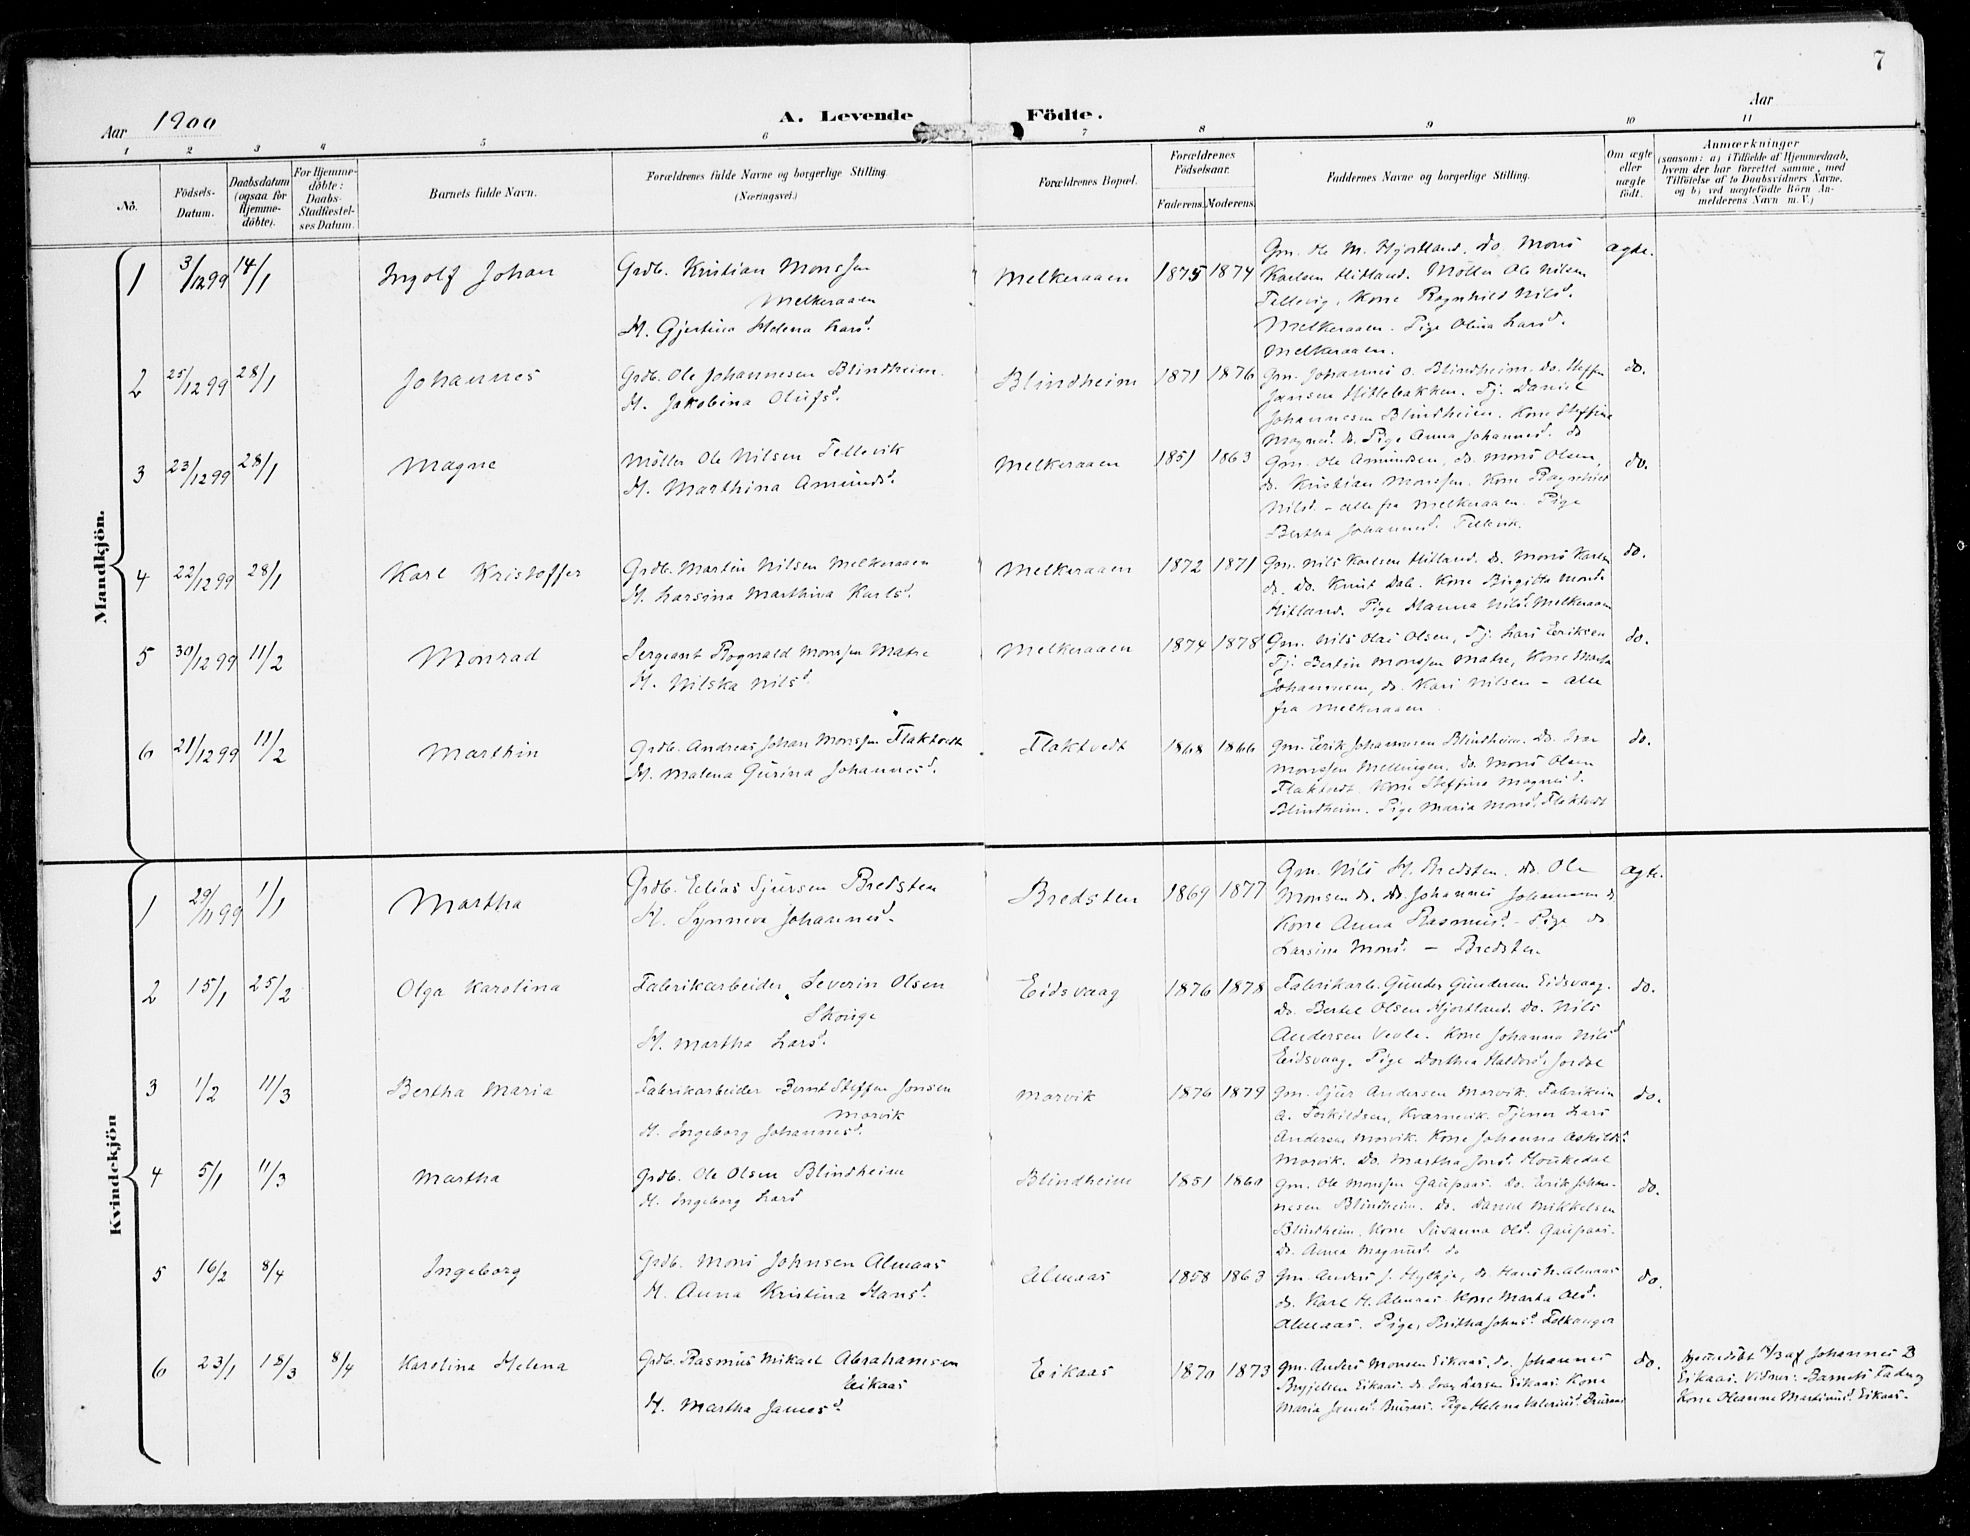 7
Aar 1900
A. Levende Födte.
Aar
1 2 3 4 5 6 7 8 9 10 11
No.
Födsels-Datum.
Daabsdatum (ogsaa for Hjemmedöbte).
For Hjemmedöbte: Daabs-Stadfæstelses Datum.
Barnets fulde Navn.
Forældrenes fulde Navne og borgerlige Stilling (Næringsvei.)
Forældrenes Bopæl.
Forældrenes Födselsaar.
Faderens. Moderens.
Faddernes Navne og borgerlige Stilling.
Om ægte eller uægte födt.
Anmærkninger
(saasom: a) i Tilfælde af Hjemmedaab,
hvem der har forrettet samme, med
Tilföielse af to Daabsvidners Navne,
og b) ved uægtefödte Börn Anmelderens Navn m. V.)
Mandkjön.
1 3/12 99 14/1 Ingolf Johan
Grdb. Kristian Monssen
Melkeraaen
H. Gjertina Helena Larsd.
Melkeraaen 1875 1874
Gm. Ole M. Hjortland. do. Mons
Karlsen Hitland. Möller Ole Nilsen
Tellevig. Kone Ragnhild Nilsd.
Melkeraaen. Pige Olina Larsd.
Melkeraaen.
ægte.
2 25/12 99 28/1 Johannes
Grdb. Ole Johannesen Blindheim.
H. Jakobina Olufsd.
Blindheim 1871 1876
Gm. Johannes O. Blindheim. do. Steffen
Jansen Hittebakken. Tj. Daniel
Johannesen Blindheim. Kone Steffina
Magnesd. do. Pige Anna Johannesd. do
do.
3 23/12 99 28/1 Magne
Möller Ole Nilsen Tellevik
H. Marthina Amundsd.
Melkeraaen 1851 1863
Gm. Ole Amundsen, do. Mons Olsen,
do. Kristian Monssen. Kone Ragnhild
Nilsd. - alle fra Melkeraaen. Pige
Bertha Johannesd. Tellevik.
do.
4 22/12 99 28/1 Karl Kristoffer
Grdb. Martin Nilsen Melkeraaen
H. Larsina Marthina Karlsd.
Melkeraaen 1872 1871
Gm. Nils Karlsen Hitland. do. Mons Karlsen
do. Do. Knut Dale. Kone Birgitte Monsd.
Hitland. Pige Hanna Nilsd. Melkeraaen
do.
5 30/12 99 11/2 Monrad
Sergeant Rognald Monssen Matre
H. Nilska Nilsd.
Melkeraaen 1874 1878
Gm. Nils Olai Olsen, Tj. Lars Eriksen
Tj. Bertin Monssen Matre, Kone Marta
Johannesen, do. Kari Nilsen - alle
fra Melkeraaen.
do.
6 21/12 99 11/2 Marthin
Grdb. Andreas Johan Monssen Flaktvedt
H. Malena Gurina Johannesd.
Flaktvedt 1868 1866
Gm. Erik Johannesen Blindheim. Do. Ivar
Monssen Mellingen. Do. Mons Olsen
Flaktvedt. Kone Steffina Magnesd.
Blindheim. Pige Maria Monsd. Flaktvedt
do.
Kvindekjön
1 29/11 99 1/1 Martha
Grdb. Elias Sjursen Bredsten
H. Synneva Johannesd.
Bredsten 1869 1877
Gm. Nils H. Bredsten. do. Ole
Monsen do. do Johannes Johannesen do.
Kone Anna Rasmusd. - Pige do
Larsina Monsd. - Bredsten
ægte.
2 15/1 25/2 Olga Karolina
Fabrikarbeider Severin Olsen
Skouge
H. Martha Larsd.
Eidsvaag 1876 1878
Fabrikarb. Gunder Gundersen Eidsvaag.
Do. Bertel Olsen Hjortland. Do. Nils
Andersen Vevle. Kone Johanna Nilsd
Eidsvaag. Pige Dorthea Haldorsd. Jordal
do.
3 1/2 11/3 Bertha Maria
Fabrikarbeider Bernt Steffen Jonsen
Morvik
H. Ingeborg Johannesd.
Morvik 1876 1879
Gm. Sjur Andersen Morvik. Fabrikeier
A. Torkildsen, Kværnevik. Tjener Lars
Andersen Morvik. Kone Johanna Askildsd.
Morvik. Do. Martha Jonsd. Houkedal
do.
4 5/1 11/3 Martha
Grdb. Ole Olsen Blindheim
H. Ingeborg Larsd
Blindheim 1851 1860
Gm. Ole Monssen Gaupaas. Do. Erik Johannesen
Blindheim. do. Daniel Mikkelsen
Blindheim. Kone Susanna Olsd. Gaupaas.
Do. Anna Magnusd. do
do.
5 16/2 8/4 Ingeborg
Grdb. Mons Johnsen Almaas
H. Anna Kristina Hansd.
Almaas 1858 1863
Gm. Anders J. Hylkje, do. Hans N. Almaas
do. Karl H. Almaas. Kone Marta Olsd.
Almaas. Pige, Britha Johnsd. Tolkanger
do.
6 23/1 18/3 8/4 Karolina Helena
Grdb. Rasmus Mikael Abrahamsen
Eikaas
H. Martha Jamesd.
Eikaas 1870 1873
Gm. Anders Monsen Eikaas, do. Johannes
Brynjelsen Eikaas. do. Ivar Larsen Eikaas. Kone
Maria Jamesd. Buraas. Pige Helena Valeriusd. Buraas
do.
Hjemdöbt 18/3 af Johannes B
Eikaas. Vidner: Barnets Fader og
Kone Oleanne Martinusd. Eikaas.